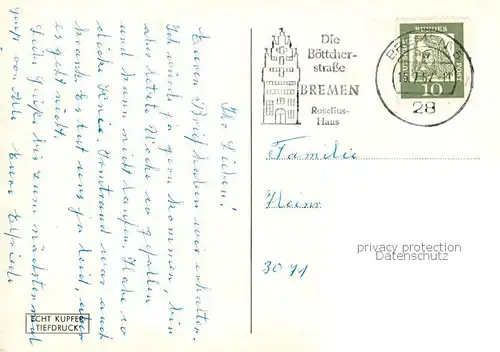 Ihr Lieben!
Euren Brief haben wir erhalten.
Ich würde ja gern kommen, bin
aber letzte Woche so gefallen
und kann nicht laufen. Habe so
dicke Knie. war auch
krank. Es tut uns ja leid, aber
es geht nicht.
Liebe Grüße bis zum nächsten mal
Eure Elfriede
ECHT KUPFER
TIEFDRUCK
Die
Böttcher-
straße
BREMEN
Roselius-
Haus
BREMEN
28
10
Familie
Heins
3071
privacy protection
Datenschutz